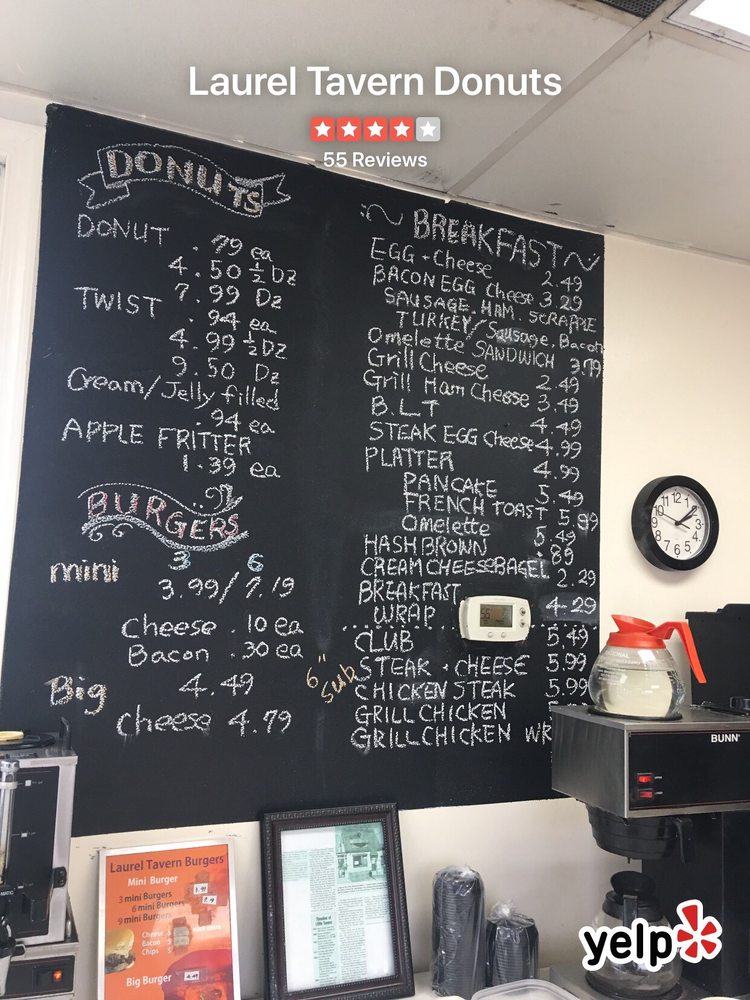 Laurel Tavern Donuts
55 Reviews
DONUTS
DONUT
.79 ea
4.50 ½ Dz
7.99 Dz
TWIST
.94 ea
4.99 ½ Dz
9.50 Dz
Cream/Jelly filled
.94 ea
APPLE FRITTER
1.39 ea
BURGERS
3 6
mini 3.99/7.19
Cheese .10 ea
Bacon .30 ea
Big 4.49
Cheese 4.79
~BREAKFAST~
EGG + Cheese 2.49
BACON EGG Cheese 3.29
SAUSAGE. HAM. SCRAPPLE
TURKEY/Sausage. Bacon
Omelette SANDWICH 3.79
Grill Cheese 2.49
Grill Ham Cheese 3.49
B.L.T 4.49
STEAK EGG Cheese 4.99
PLATTER 4.99
PANCAKE 5.49
FRENCH TOAST 5.99
Omelette 5.49
HASHBROWN .89
CREAM CHEESE BAGEL 2.29
BREAKFAST
WRAP 4.29
CLUB 5.49
6" Sub
STEAK + CHEESE 5.99
CHICKEN STEAK 5.99
GRILL CHICKEN
GRILL CHICKEN WR
BUNN
Laurel Tavern Burgers
Mini Burger
3 mini Burgers
6 mini Burgers
9 mini Burgers
Cheese
Bacon
Chips
Big Burger
yelp